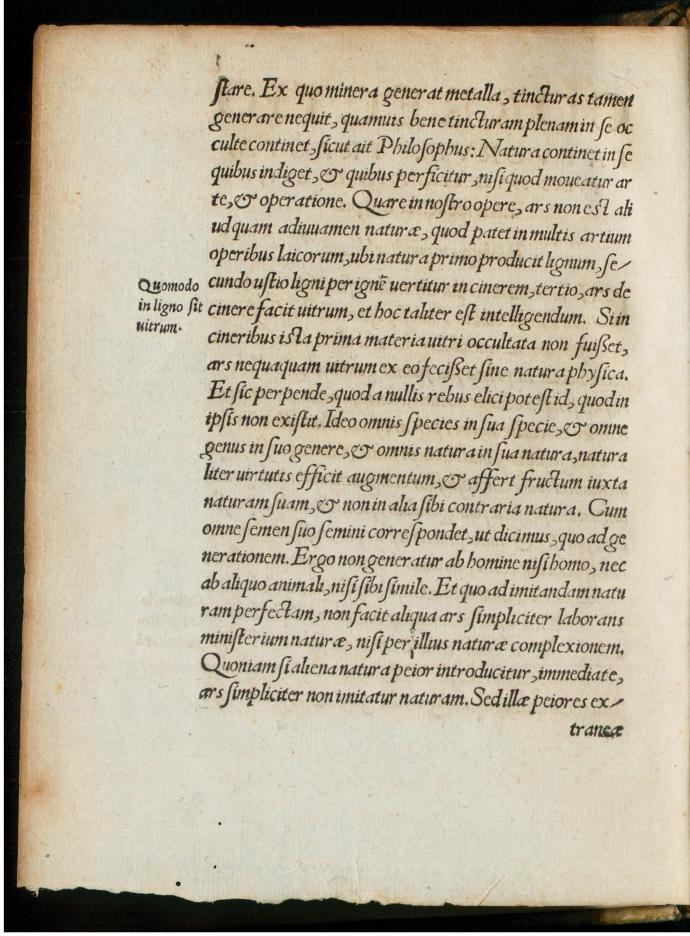 stare. Ex quo minera generat metalla, tincturas tamen
generare nequit, quamuis bene tincturam plenam in se oc
culte continet, sicut ait Philosophus: Natura continet in se
quibus indiget, & quibus perficitur, nisi quod moueatur ar
te, & operatione. Quare in nostro opere, ars non est ali
ud quam adiuuamen naturæ, quod patet in multis artium
operibus laicorum, ubi natura primo producit lignum, se/
Quomodo
in ligno sit
uitrum.
cundo ustio ligni per ignē uertitur in cinerem, tertio, ars de
cinere facit uitrum, et hoc taliter est intelligendum. Si in
cineribus ista prima materia uitri occultata non fuisset,
ars nequaquam uitrum ex eo fecisset sine natura physica.
Et sic perpende, quod a nullis rebus elici potest id, quod in
ipsis non existit. Ideo omnis species in sua specie, & omne
genus in suo genere, & omnis natura in sua natura, natura
liter uirtutis efficit augmentum, & affert fructum iuxta
naturam suam, & non in alia sibi contraria natura. Cum
omne semen suo semini correspondet, ut dicimus, quo ad ge
nerationem. Ergo non generatur ab homine nisi homo, nec
ab aliquo animali, nisi sibi simile. Et quo ad imitandam natu
ram perfectam, non facit aliqua ars simpliciter laborans
ministerium naturæ, nisi per illius naturæ complexionem.
Quoniam si aliena natura peior introducitur, immediate,
ars simpliciter non imitatur naturam. Sed illæ peiores ex/
traneæ